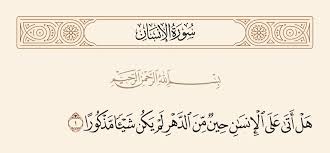 سُورَةُ الإِنسَانِ
بِسْمِ اللَّهِ الرَّحْمَٰنِ الرَّحِيمِ
هَلْ أَتَىٰ عَلَى ٱلْإِنسَٰنِ حِينٌ مِّنَ ٱلدَّهْرِ لَمْ يَكُن شَيْـًٔا مَّذْكُورًا ١